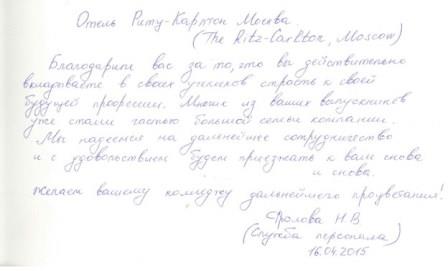 Отель Ритц-Карлтон Москва.
(The Ritz-Carlton, Moscow)
Благодарим вас за то, что вы действительно
вкладываете в своих учеников страсть к своей
будущей профессии. Многие из ваших выпускников
уже стали частью большой семьи компании.
Мы надеемся на дальнейшее сотрудничество
и с удовольствием будем приезжать к вам снова
и снова.
Желаем вашему колледжу дальнейшего процветания!
Фролова Н.В.
(Служба персонала)
16.04.2015